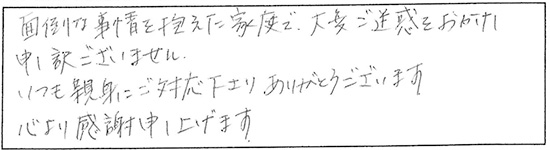 面倒な事情を抱えた家庭で、大変ご迷惑をおかけ
申し訳ございません。
いつも親身にご対応下さりありがとうございます
心より感謝申し上げます